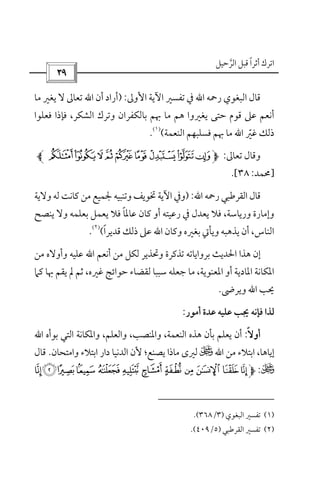 اترك أثراً قبل الرَّحيل
٣٩
قال البغوي رحمه الله في تفسير الآية الأولى: (أراد أن الله تعالى لا يغير ما
أنعم على قوم حتى يغيروا هم ما بهم بالكفران وترك الشكر، فإذا فعلوا
ذلك غيَّر الله ما بهم فسلبهم النعمة)(١).
وقال تعالى: ﴿ وَإِن تَتَوَلَّوْاْ يَسْتَبْدِلْ قَوْمًا غَيْرَكُمْ ثُمَّ لَا يَكُونُوٓاْ أَمْثَـٰلَكُم ﴾
[محمد: ٣٨].
قال القرطبي رحمه الله: (وفي الآية تخويف وتنبيه لجميع من كانت له ولاية
وإمارة ورياسة، فلا يعدل في رعيته أو كان عالماً فلا يعمل بعلمه ولا ينصح
الناس، أن يذهبه ويأتي بغيره وكان الله على ذلك قديراً)(٢).
إن هذا الحديث برواياته تذكرة وتحذير لكل من أنعم الله عليه وأولاه من
المكانة المادية أو المعنوية، ما جعله سببا لقضاء حوائج غيره، ثم لم يقم بها كما
يحب الله ويرضى.
لذا فإنه يجب عليه عدة أمور:
أولاً: أن يعلم بأن هذه النعمة، والمنصب، والعلم، والمكانة التي بوأه الله
إياها، ابتلاء من الله ﷻ ليرى ماذا يصنع؛ لأن الدنيا دار ابتلاء وامتحان. قال
ﷻ: ﴿ إِنَّا خَلَقْنَا ٱلْإِنسَـٰنَ مِن نُّطْفَةٍ أَمْشَاجٍ نَّبْتَلِيهِ فَجَعَلْنَـٰهُ سَمِيعًۢا بَصِيرًا ۝٢ إِنَّا
(١) تفسير البغوي (٣/ ٣٦٨).
(٢) تفسير القرطبي (٥/ ٤٠٩).